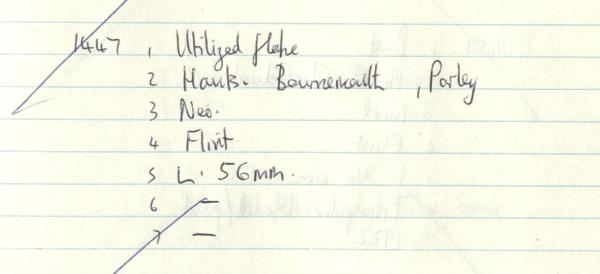 1447 1 Utilized flake
2 Hants. Bournemouth, Parley
3 Neo.
4 Flint
5 L. 56mm.
6 —
7 —